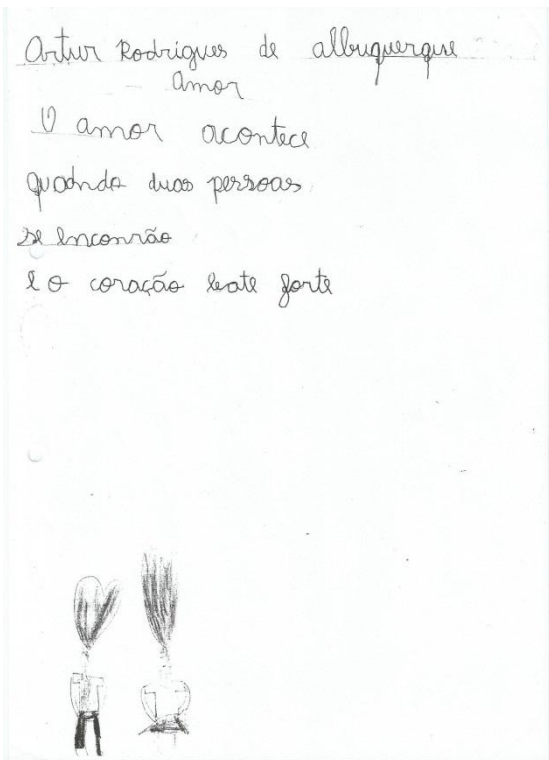 Artur Rodrigues de albuquerque
Amor
O amor acontece
quando duas pessoas
se enconrão
e o coração bate forte